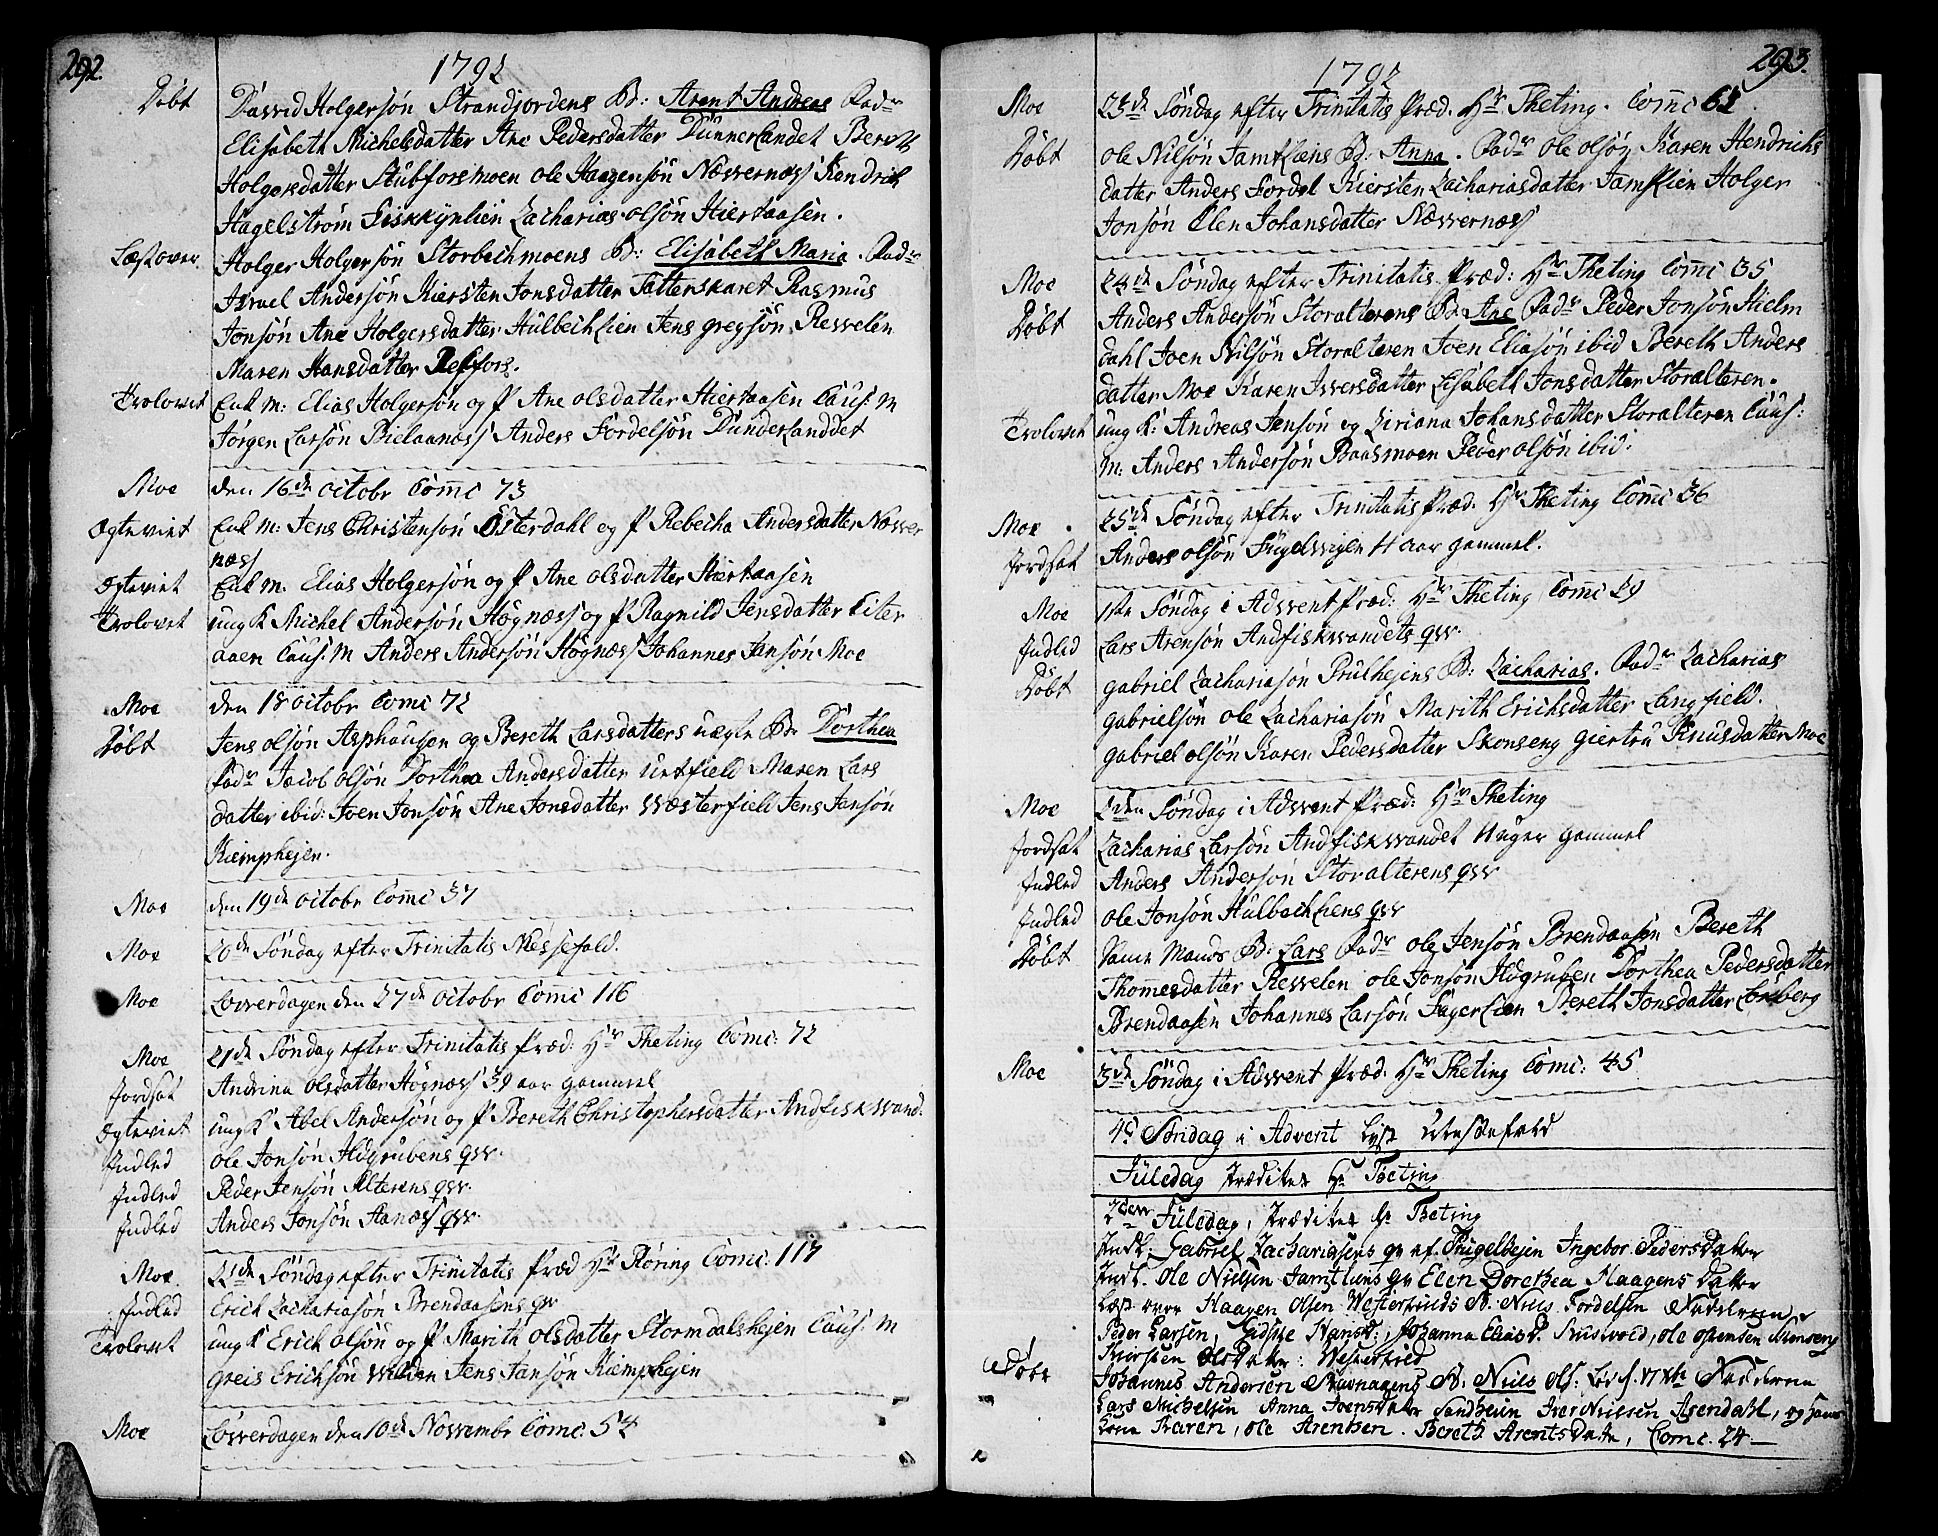 292.
1792
Döbt Davrid Holgersön Strandjordens B: Arent Andreas Fadr
Elisabeth Michelsdatter Ane Pedersdatter Dunnerlandet Bereth
Holgersdatter Stubforsmoen ole Haagensön Næsvernæs Hendrich
Hagelström Fiskkynlien Zacharias olsön Hiertaasen.
Læstover. Holger Holgersön Storbechmoens B: Elisabeth Maria. Fadr
Israel Andersön Kiersten Jonsdatter Tatterskaret Rasmus
Jonsön Ane Holgersdatter Hulbechlien Jens gregsön Ressvelen
Maren Hansdatter Reffors.
Trolovet Enk m: Elias Holgersön og P Ane olsdatter Hiertaasen Caus: M
Jörgen Larsön Bielaanæss Anders Fordelsön Dunderlanddet
Moe den 16de octobr Comc 73
Ægteviet Enk m: Jens Christensön Österdahl og P Rebecha Andersdatter Næsver
næss
Ægteviet Enk m. Elias Holgersön og P Ane olsdatter Hiertaasen
Trolovet ung K Michel Andersön Högnæss og P Ragnild Jensdatter Eiter
aaen Caus: M Anders Andersön Högnæss Johannes Jansön Moe
Moe den 18 octobr Comc 72
Döbt Jens olsön Asphaugen og Bereth Larsdatters uægte B: Dorthea
Fadr Jacob olsön Dorthea Andersdatter Urtfield Maren Lars
datter ibid: Joen Jonsön Ane Jonsdatter Wæsterfield Jens Jansön
Kiemphejen.
Moe den 19de octobr Comc 37
Moe 20de Söndag efter Trinitatis Messefald.
Moe Löverdagen den 27de octobr Comc 116
Moe 21de Söndag efter Trinitatis Præd: Hr Theting Comc: 72
Jordsat Andrina olsdatter Högnæss 39 aar gammel
Ægteviet ung K Abel Andersön og P Bereth Christophersdatter Andfiskvand.
Indled ole Jonsön Ildgrubens qvr.
Indled Peder Jensön Alterens qvr.
Indled Anders Jonsön Aanæss qvr.
Moe. 22de Söndag efter Trinitatis Præd Hr Röring Comc: 117
Indled Erich Zachariasön Brendaasens qvr
Trolovet ung K Erich olsön og P Marith olsdatter Stormdalshejen Caus: M
greis Erichsön Wilden Jens Jansön Kiemphejen
Moe Löverdagen den 10de Novembr Comc: 54
293.
1792
Moe 23de Söndag efter Trinitatis Præd. Hr Theting. Comc 62
Döbt ole Nilsön Jamtliens B: Anna. Fadr ole olsön Karen Hendrichs
datter Anders Fordel Kiersten Zachariasdatter Jamtlien Holger
Jonsön Elen Johansdatter Næsvernæss
Moe 24de Söndag efter Trinitatis Præd: Hr Theting Comc 35
Döbt Anders Andersön Storalterens B: Ane Fadr Peder Jonsön Hielm
dahl Joen Nilsön Storalteren Joen Eliasön ibid Bereth Anders
datter Moe Karen Iversdatter Lisabeth Jonsdatter Storalteren.
Trolovet ung K: Andreas Jensön og Ziriana Johansdatter Storalteren Caus:
M: Anders Andersön Baasmoen Peder olsön ibid.
Moe 25de Söndag efter Trinitatis Præd. Hr Theting Comc 36
Jordsat Anders olsön Fugelvigen 11 aar gammel.
Moe 1ste Söndag i Advent Præd: Hr Theting Comc 29
Indled Lars Arensön Andfiskvandets qvr.
Döbt gabriel Zachariasön Prulhejens B: Zacharias. Fadr Zacharias
gabrielsön ole Zachariasön Marith Erichsdatter Langfield.
gabriel olsön Karen Pedersdatter Skonseng giertru Knusdatter Moe
Moe 2den Söndag i Advent Præd: Hr Theting
Jordsat Zacharias Larsön Andfiskvandet 11 uger gammel
Indled Anders Andersön Storalterens qvr
Indled ole Jonsön Hulbechliens qvr
Döbt Same Mands B: Lars Fadr ole Jensön Brendaasen Bereth
Thomesdatter Ressvelen ole Jonsön Ildgruben Dorthea Pedersdatter
Brendaasen Johannes Larsön Fagerlien Bereth Jonsdatter Lösberg
Moe 3de Söndag i Advent Præd: Hr Theting Comc: 45
4de Söndag i Advent Messefald
Juledag Prædiket Hr Theting
2den Juledag, Prædiket Hr Theting
Indl. Gabriel Zachariasens qv ef. Ingebor Pedersdatter
Indl. Ole Nielsen Jamtliens qv Elen Dorethea Haagensdatter
Læst over Haagen Olsen Westerfields B. Niels Fordelsen
Peder Larsen, Hansd:, Johanna Eliasd. ole
Kiersten Olsdatter: Westerfield
Döbt Johannes Andersen B. Niels
Lars Michelsen Anna Joensdatter Sandheim Iver Nielsen Arendahl, og hans
kone Karen, ole Arentsen. Bereth Arentsdatter, Comc. 24